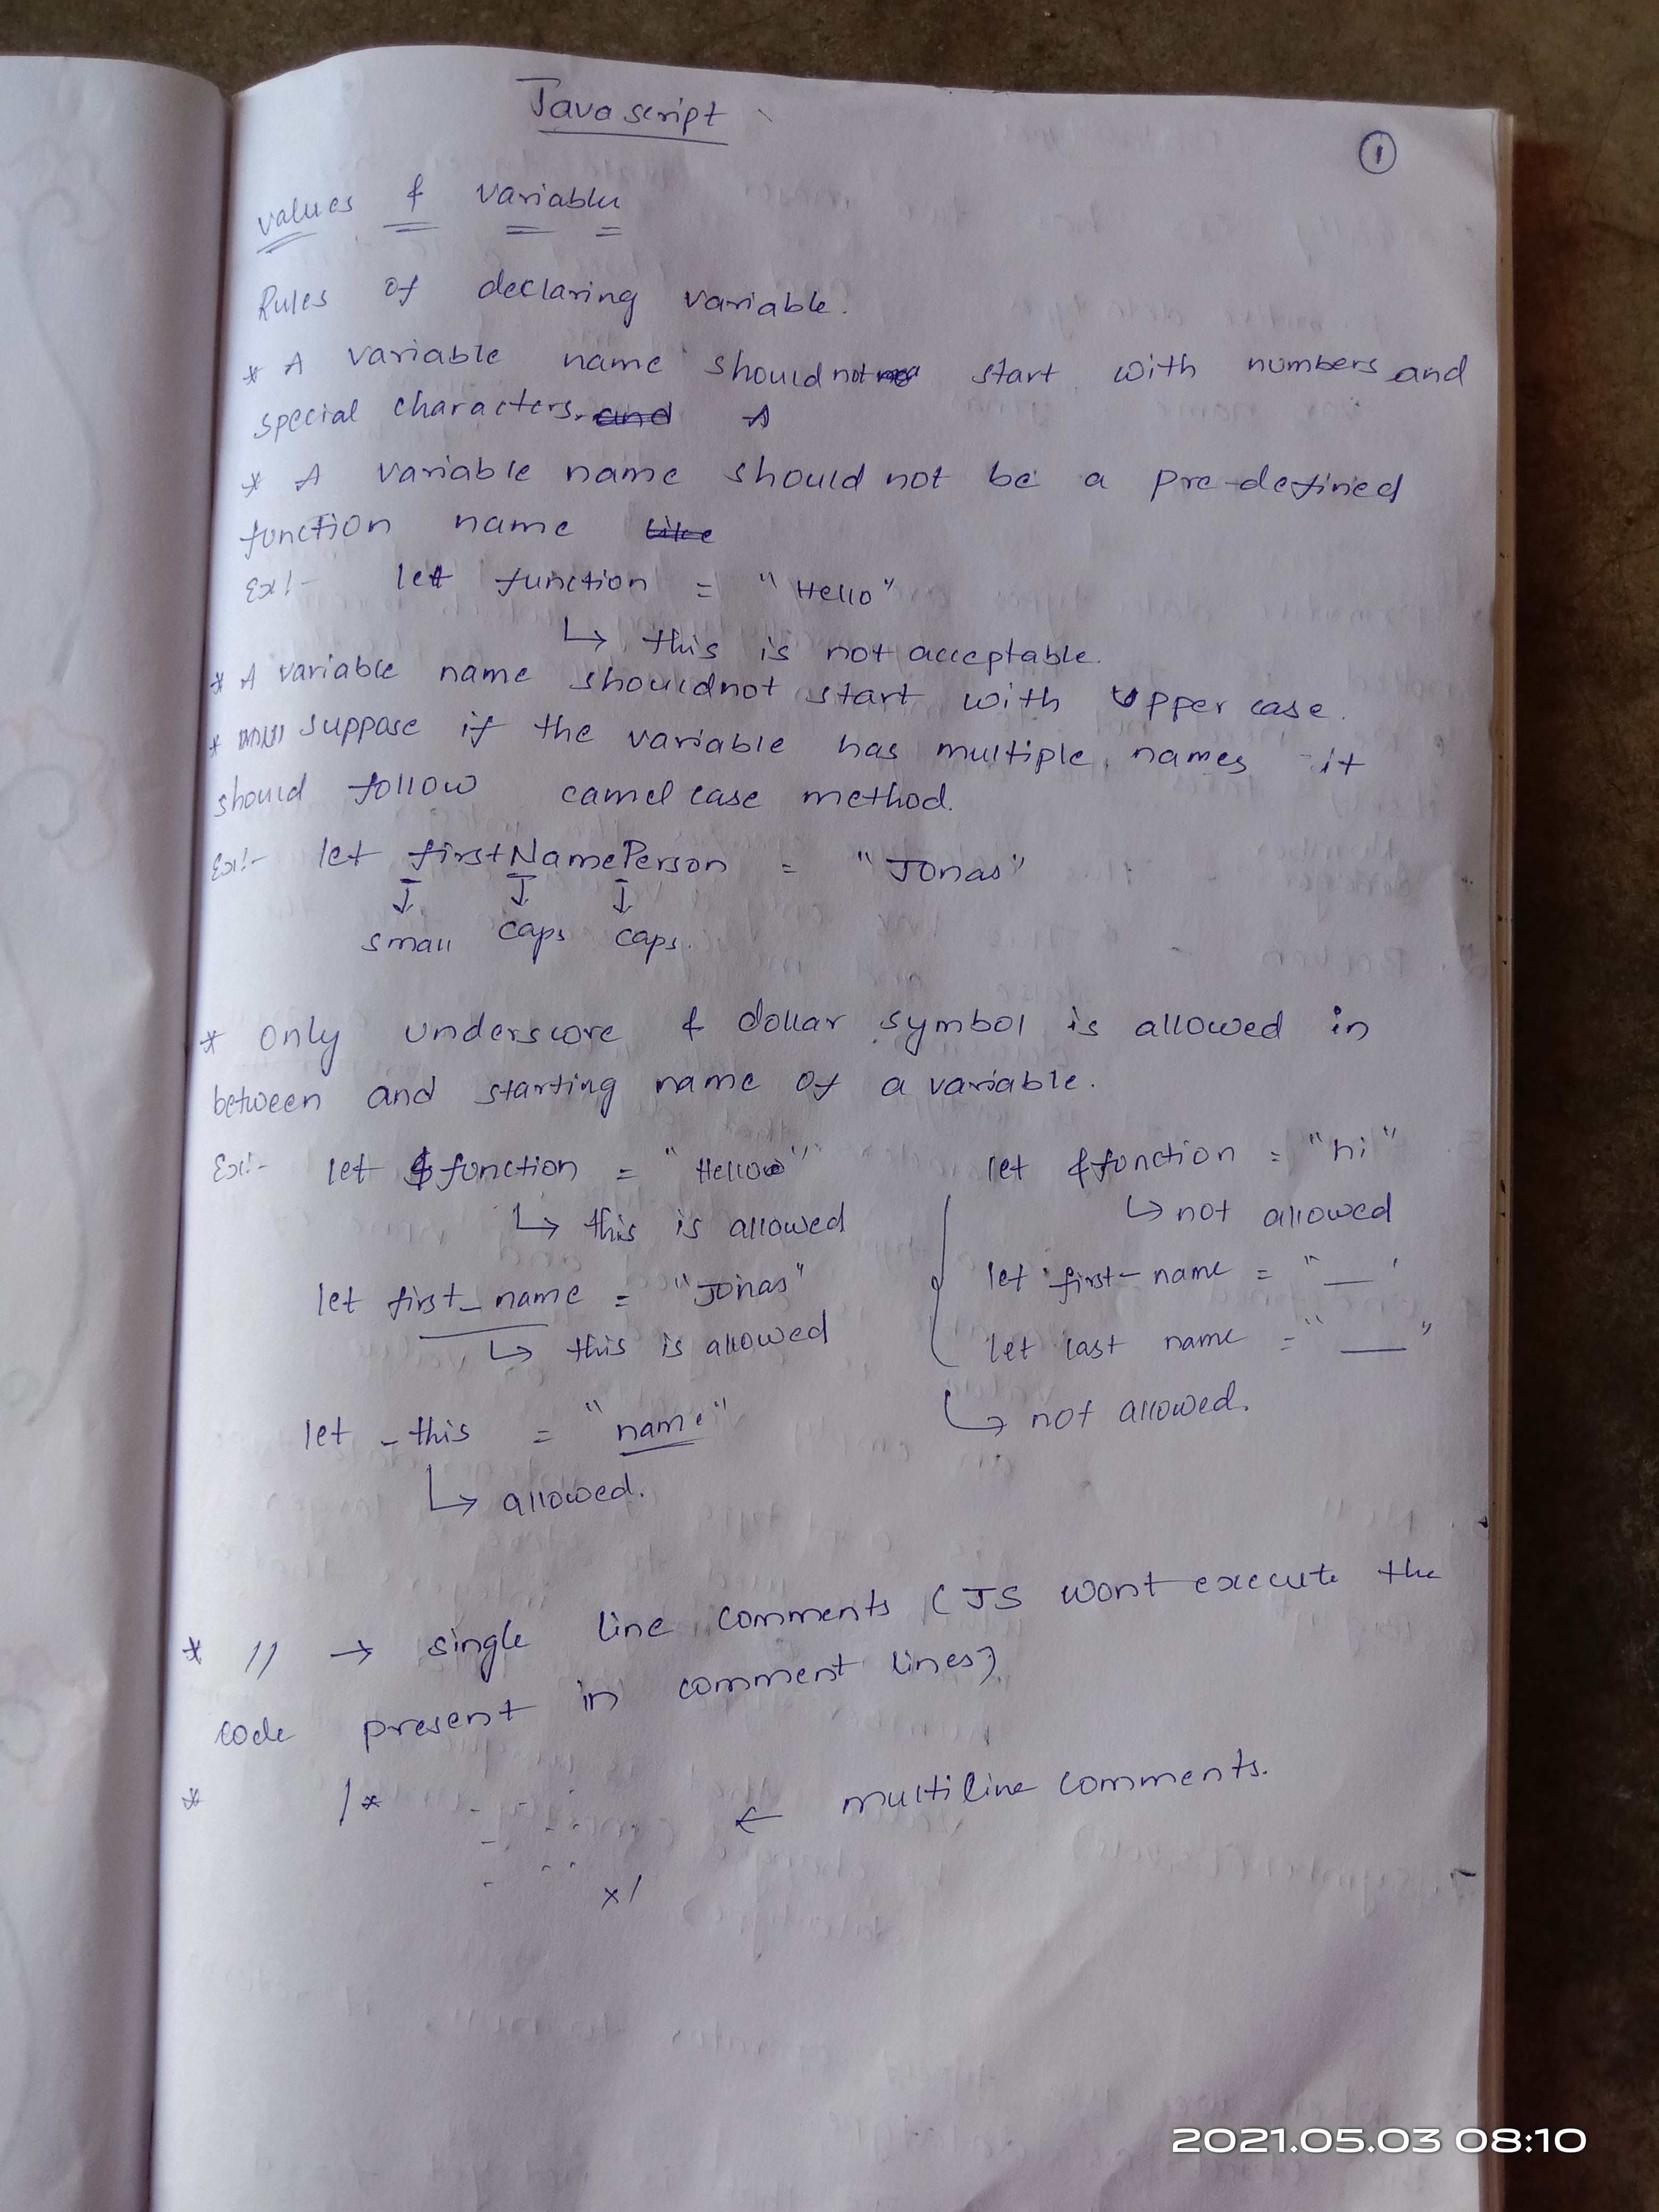 Javascript
1
values & variable
Rules of declaring variable.
* A variable name should not start with numbers and
special characters. and A
* A variable name should not be a pre-defined
function name like
Ex!- let function = "Hello"
↳ this is not acceptable.
* A variable name should not start with Upper case.
* suppose if the variable has multiple names it
should follow camel case method.
Ex!- let firstNamePerson = "Jonas"
small caps caps.
* Only underscore & dollar symbol is allowed in
between and starting name of a variable.
Ex!- let $function = "Hello"
↳ this is allowed
let first_name = "Jonas"
↳ this is allowed
let _this = "name"
↳ allowed.
let &function = "hi"
↳ not allowed
let first-name = "__'
let last name = "__"
↳ not allowed.
* // → single line comments (JS wont execute the
code present in comment lines)
* /*
← multiline comments.
*/
2021.05.03 08:10